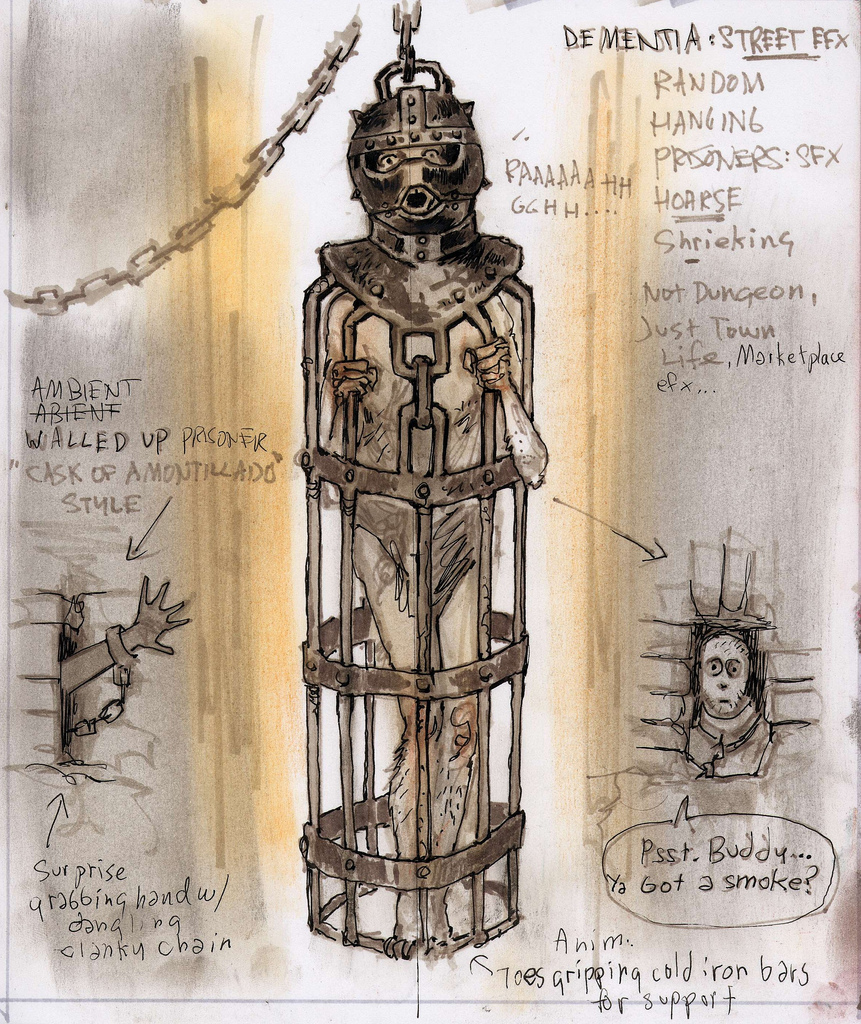 DEMENTIA: STREET EFX
RANDOM
HANGING
PRISONERS: SFX
HOARSE
Shrieking
Not Dungeon,
Just Town
Life, Marketplace
efx...
RAAAAAAHH
GGHH....
AMBIENT
ABIENT
WALLED UP PRISONER
"CASK OF AMONTILLADO"
STYLE
Surprise
grabbing hand w/
dangling
clanky chain
Psst. Buddy...
Ya Got a smoke?
Anim.
Toes gripping cold iron bars
for support